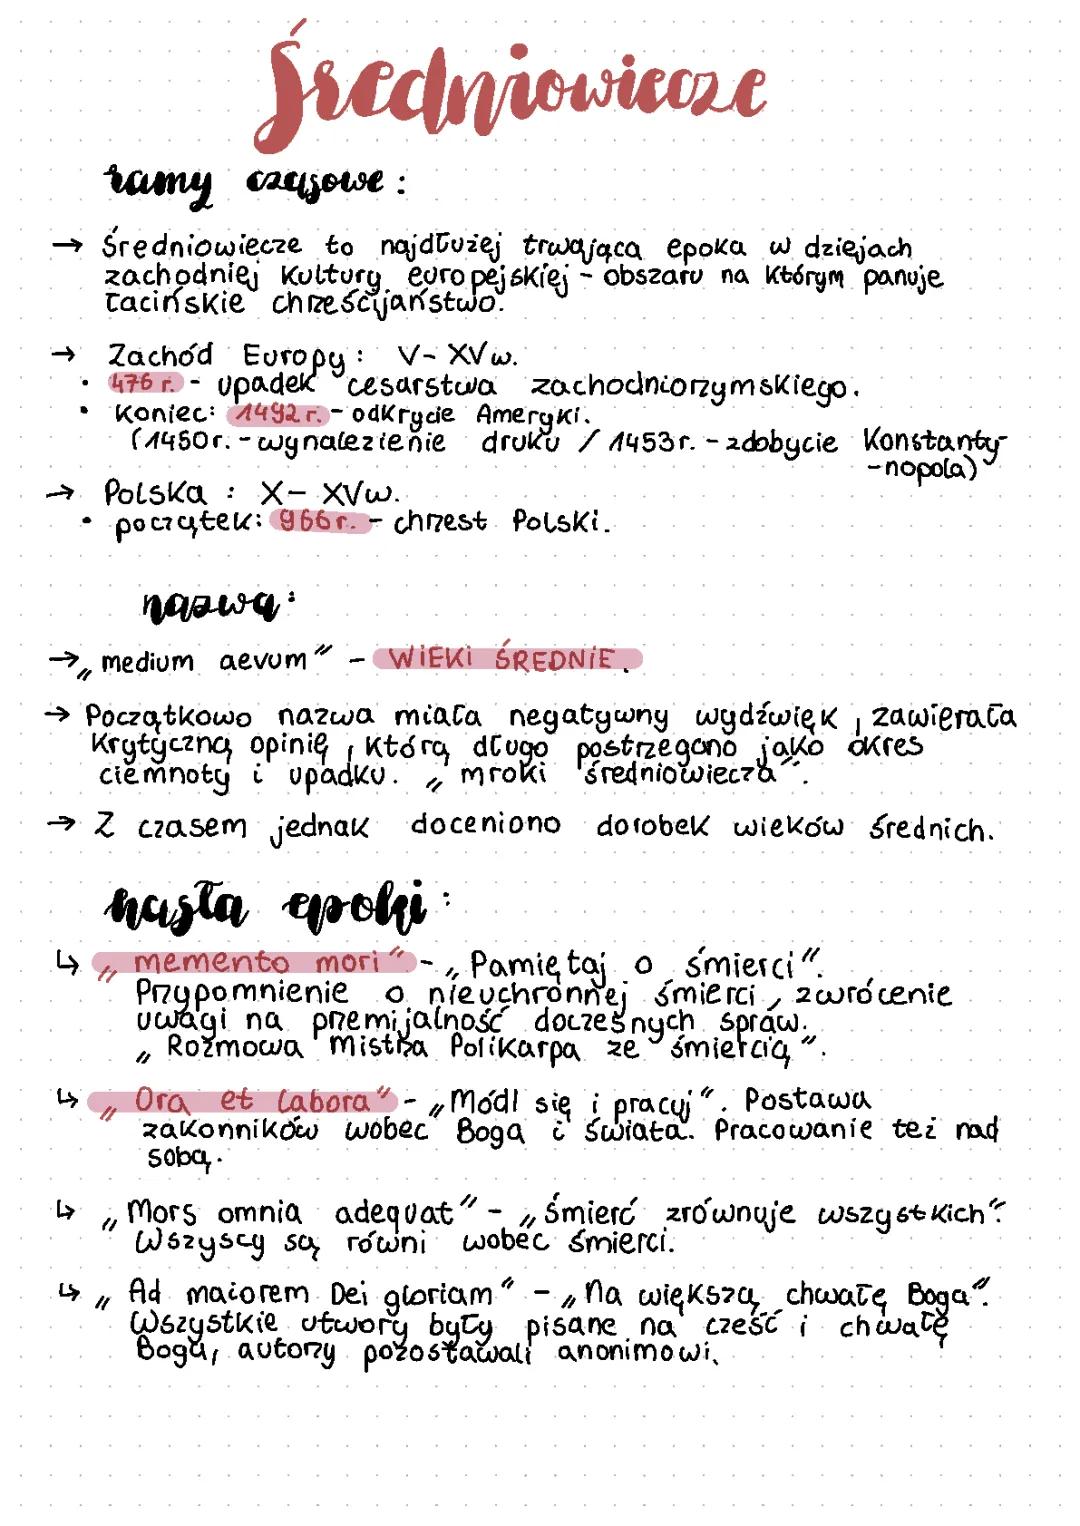 Średniowiecze
ramy czasowe:
→ Średniowiecze to najdłużej trwająca epoka w dziejach
zachodniej kultury europejskiej - obszaru na którym panuje
łacińskie chrześcijaństwo.
→ Zachód Europy: V-XV w.
• 476 r. - upadek cesarstwa zachodniorzymskiego.
• Koniec: 1492 r. - odkrycie Ameryki.
(1450r. - wynalezienie druku / 1453r. - zdobycie Konstanty-
-nopola)
→ Polska: X-XV w.
• początek: 966 r. - chrzest Polski.
nazwa:
→ „medium aevum” - WIEKI ŚREDNIE.
→ Początkowo nazwa miała negatywny wydźwięk, zawierała
krytyczną opinię, którą długo postrzegano jako okres
ciemnoty i upadku. „mroki średniowiecza”.
→ Z czasem jednak doceniono dorobek wieków średnich.
hasła epoki:
↳ „memento mori” - „Pamiętaj o śmierci”.
Przypomnienie o nieuchronnej śmierci, zwrócenie
uwagi na przemijalność doczesnych spraw.
„Rozmowa Mistrza Polikarpa ze śmiercią”.
↳ „Ora et labora” - „Módl się i pracuj”. Postawa
zakonników wobec Boga i świata. Pracowanie też nad
sobą.
↳ „Mors omnia adequat” - „śmierć zrównuje wszystkich”.
Wszyscy są równi wobec śmierci.
↳ „Ad maiorem Dei gloriam” - „Na większą chwałę Boga”.
Wszystkie utwory były pisane na cześć i chwałę
Boga, autorzy pozostawali anonimowi.